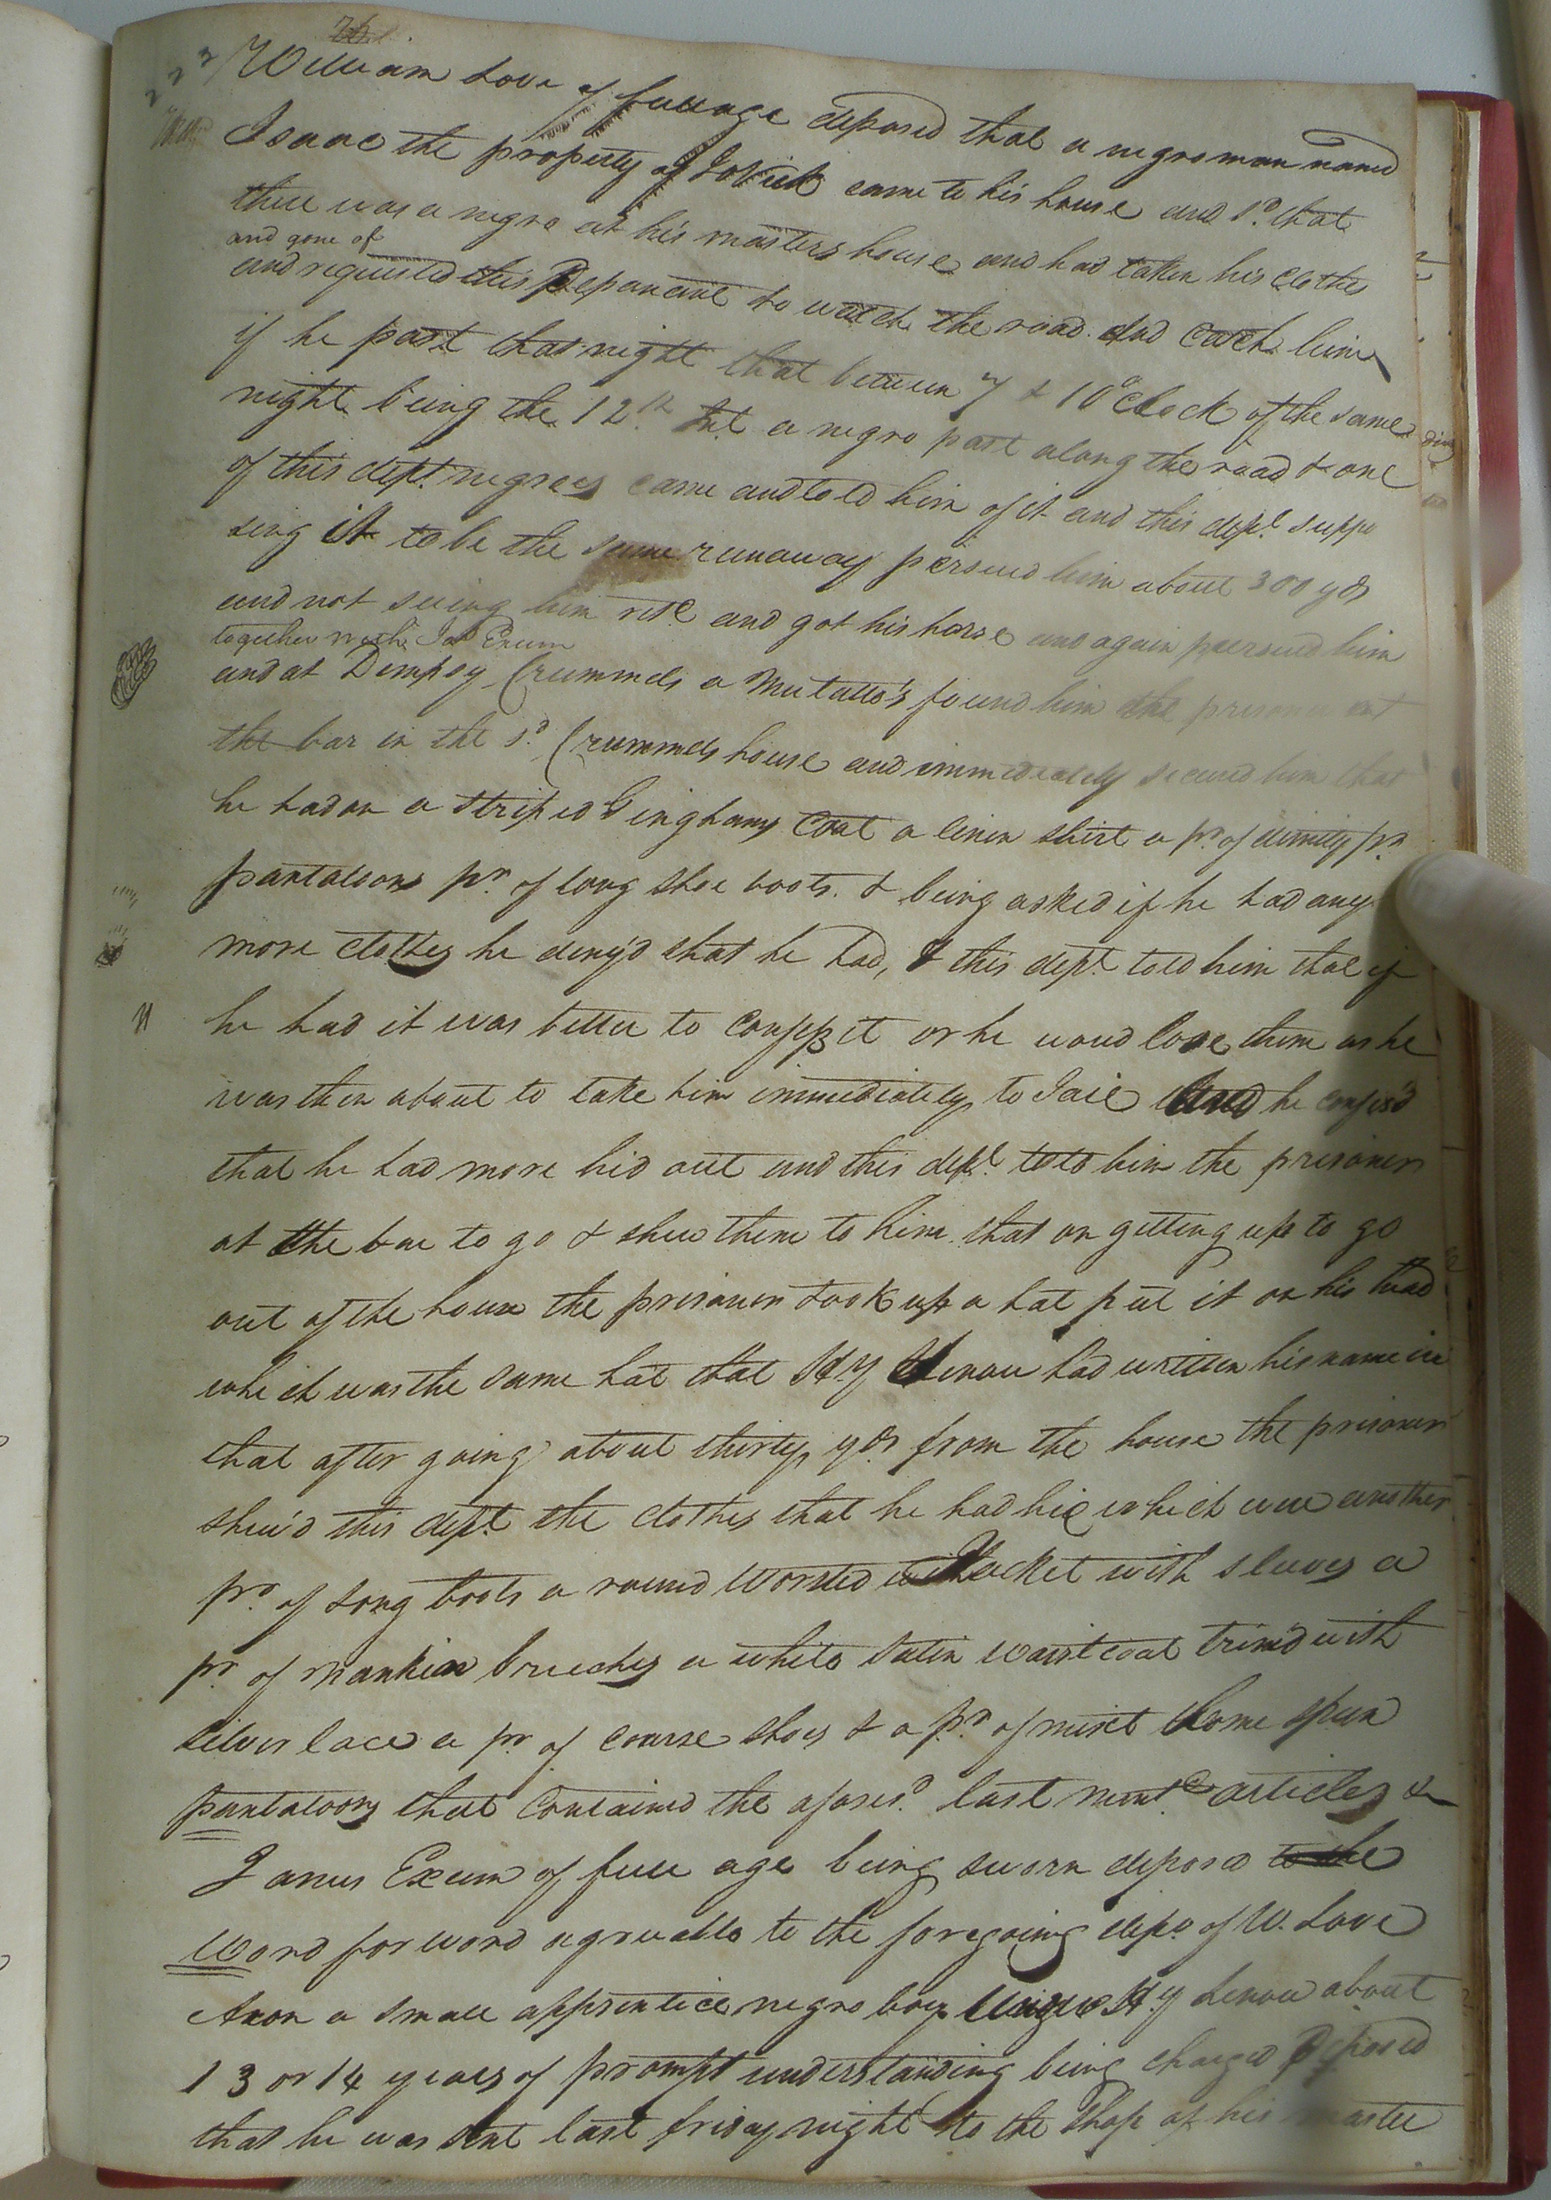 223
William Love of full age deposed that a negro man named
Isaac the property of came to his house and sd. that
there was a negro at his masters house and had taken his clothes
and gone of
and requested this Deponant to watch the road and catch him
if he past that night that between 7 & 10 oClock of the same
night being the 12th Int. a negro past along the road & one
of this dept. negroes came and told him of it and this dept. suppo
sing it to be the same runaway persued him about 300 yds
and not seeing him and got his horse and again persued him
together with Jas Exum
and at Dempsy Crummels a Mulatto's found him the prisoner at
the bar in the sd. Crummels house and immediately secured him that
he had on a striped Gingham Coat a linen shirt a pr. of dimity pr.
pantaloons pr. of long shoe boots & being asked if he had any
more clothes he deny'd that he had, & this dept. told him that if
he had it was better to confess it or he woud lose them as he
was then about to take him immediately to Jail and he confess'd
that he had more hid out and this dept. told him the prisoner
at the bar to go & shew them to him that on getting up to go
out of the house the prisoner took up a hat put it on his head
which was the same hat that Hy. had written his name in
that after going about thirty yds. from the house the prisoner
shew'd this dept. the clothes that he had hid which were another
pr. of long boots a round worsted Jacket with sleeves a
pr. of Nankin breeches a white satin waistcoat trim'd with
silver lace a pr. of coarse shoes & a pr. of mixt home spun
pantaloons that contained the aforesd. last mentd. articles &
James Exum of full age being sworn deposed to the
word for word agreeable to the foregoing depo. of W. Love
a small apprentice negro boy Hy. about
13 or 14 years of prompt understanding being charged Deposed
that he was sent last friday night to the shop of his master